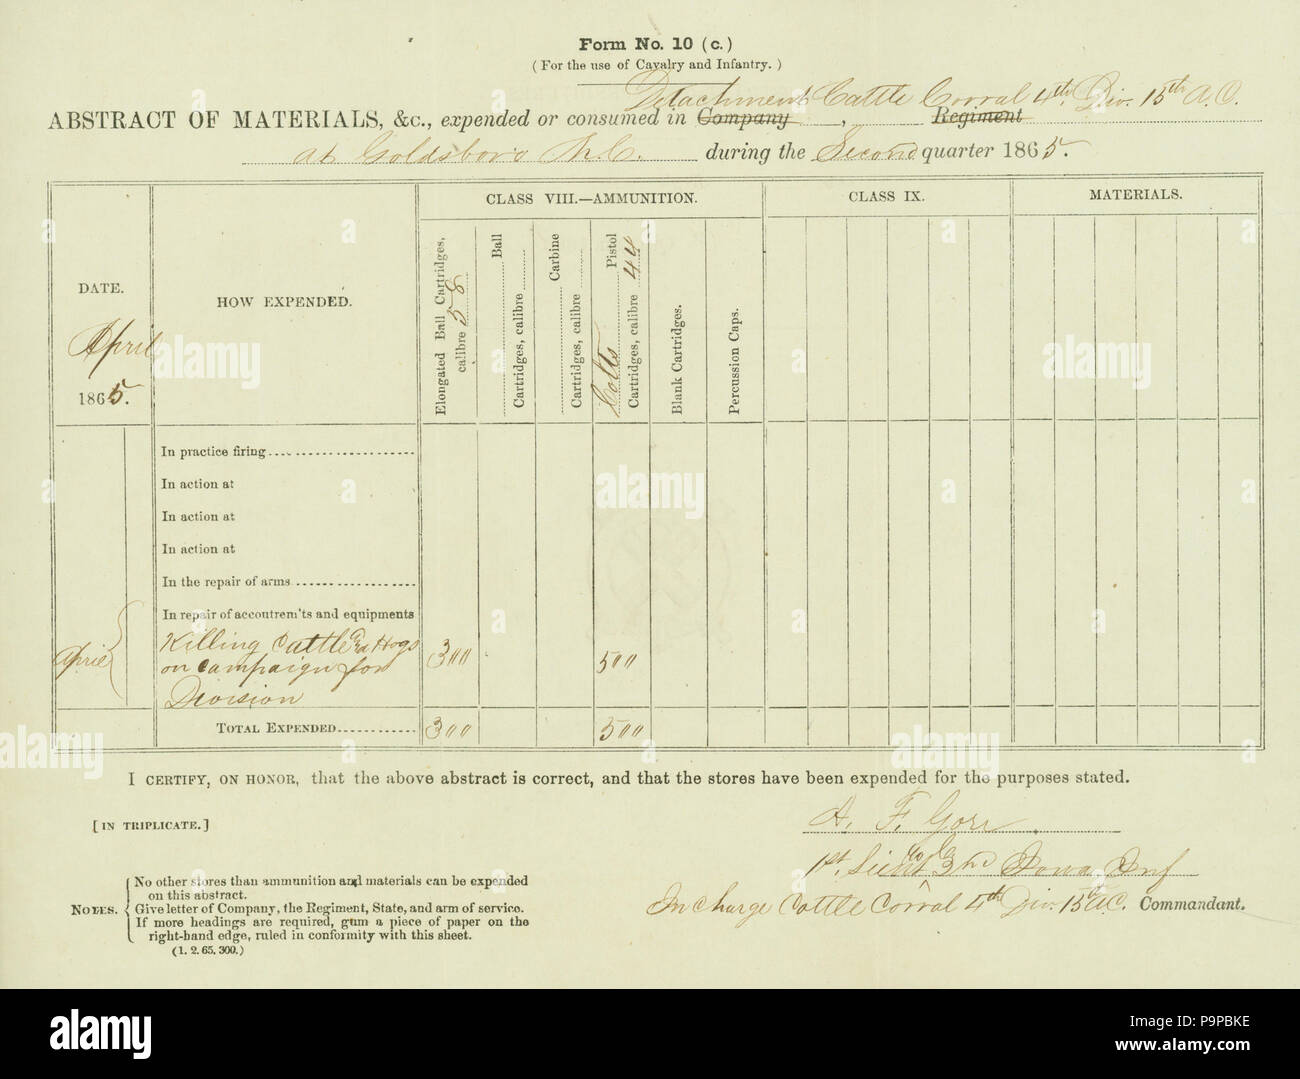 Form No. 10 (c.)
(For the use of Cavalry and Infantry.)
Detachment Cattle Corral 4th Div. 15th A.C.
ABSTRACT OF MATERIALS, &c., expended or consumed in Company , Regiment
at Goldsboro N.C. during the Second quarter 1865.
DATE.
April
1865.
HOW EXPENDED.
CLASS VIII.—AMMUNITION.
CLASS IX.
MATERIALS.
Elongated Ball Cartridges, calibre 58
Ball Cartridges, calibre
Carbine Cartridges, calibre
Colts Pistol Cartridges, calibre 44
Blank Cartridges.
Percussion Caps.
In practice firing
In action at
In action at
In action at
In the repair of arms
In repair of accoutrem'ts and equipments
April Killing Cattle and Hogs 300 500
on campaign for
Division
TOTAL EXPENDED 300 500
I CERTIFY, ON HONOR, that the above abstract is correct, and that the stores have been expended for the purposes stated.
[IN TRIPLICATE.]
A. F. Gorr
1st Lieut Co 3rd Iowa Inf
In charge Cattle Corral 4th Div. 15th A.C. Commandant.
NOTES.
No other stores than ammunition and materials can be expended
on this abstract.
Give letter of Company, the Regiment, State, and arm of service.
If more headings are required, gum a piece of paper on the
right-hand edge, ruled in conformity with this sheet.
(1. 2. 65. 300.)
alamy
Image ID: P9PBKE
www.alamy.com